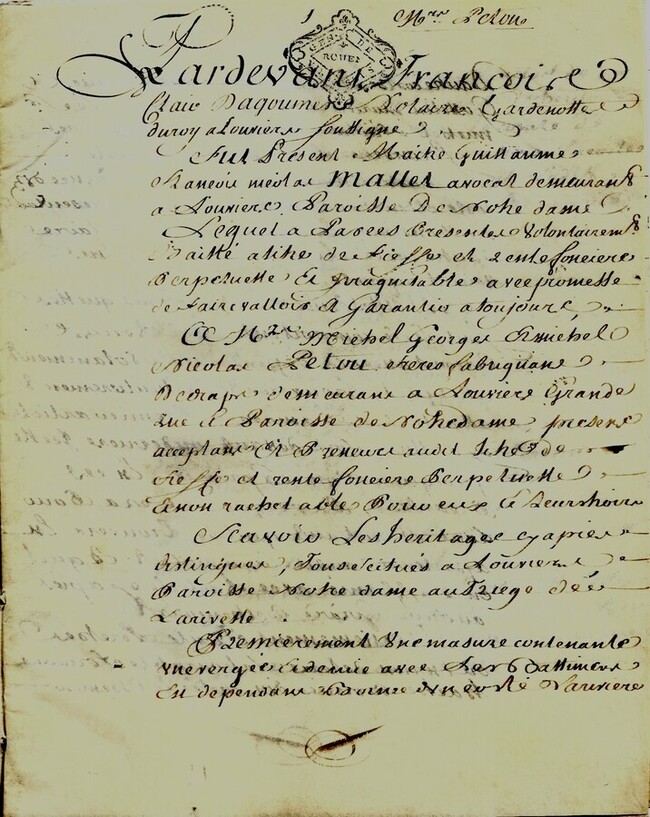 1 Mrs Petou
GEN DE
ROUEN
Pardevant Francois
Claude Dagoumer Notaire Gardenotte
du roy a Louviers soussigné
Fut Present Maitre Guillaume
francois nicolas Mallet avocat demeurant
a Louviers Paroisse De Notre dame
Lequel a Par ces Presentes Volontairemt
Baillé a titre de fieffe et rente fonciere
Perpetuelle Et irraquitable avec promesse
de faire valloir et Garantir a toujours
A Mrs Michel Georges & michel
Nicolas Petou freres fabriquans
De draps demeurans a Louviers Grande
rue & Paroisse de Notre dame present
acceptans Et Preneurs audit titre de
fieffe et rente fonciere Perpetuelle
Et non rachetable Pour eux & Leurs hoirs
Scavoir Les heritages cy apres
distingués, Tous scitués a Louviers,
Paroisse Notre dame au Triege de
Larivette
Premierement Une masure contenante
une vergée & demie avec Les Battimens
En dependans bornée d'un coté